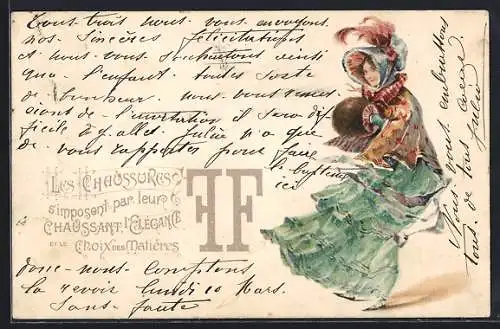 Tous trois nous vous envoyons
nos Sincères félicitations
et nous vous souhaitons ainsi
qua l'enfant toutes sorte
de bonheur nous vous remer
sions de l'invitation il sera dif
ficile d'y aller Julie n'a que
de vous rapporter pour faire
le baptême
ici
LES CHAUSSURES FF
s'imposent par leur
CHAUSSANT, L'ÉLÉGANCE
ET LE CHOIX DES MATIÈRES
donc nous comptons
la revoir lundi 10 Mars.
Sans faute
Nous vous embrassons
tous de tous cœur
Julie